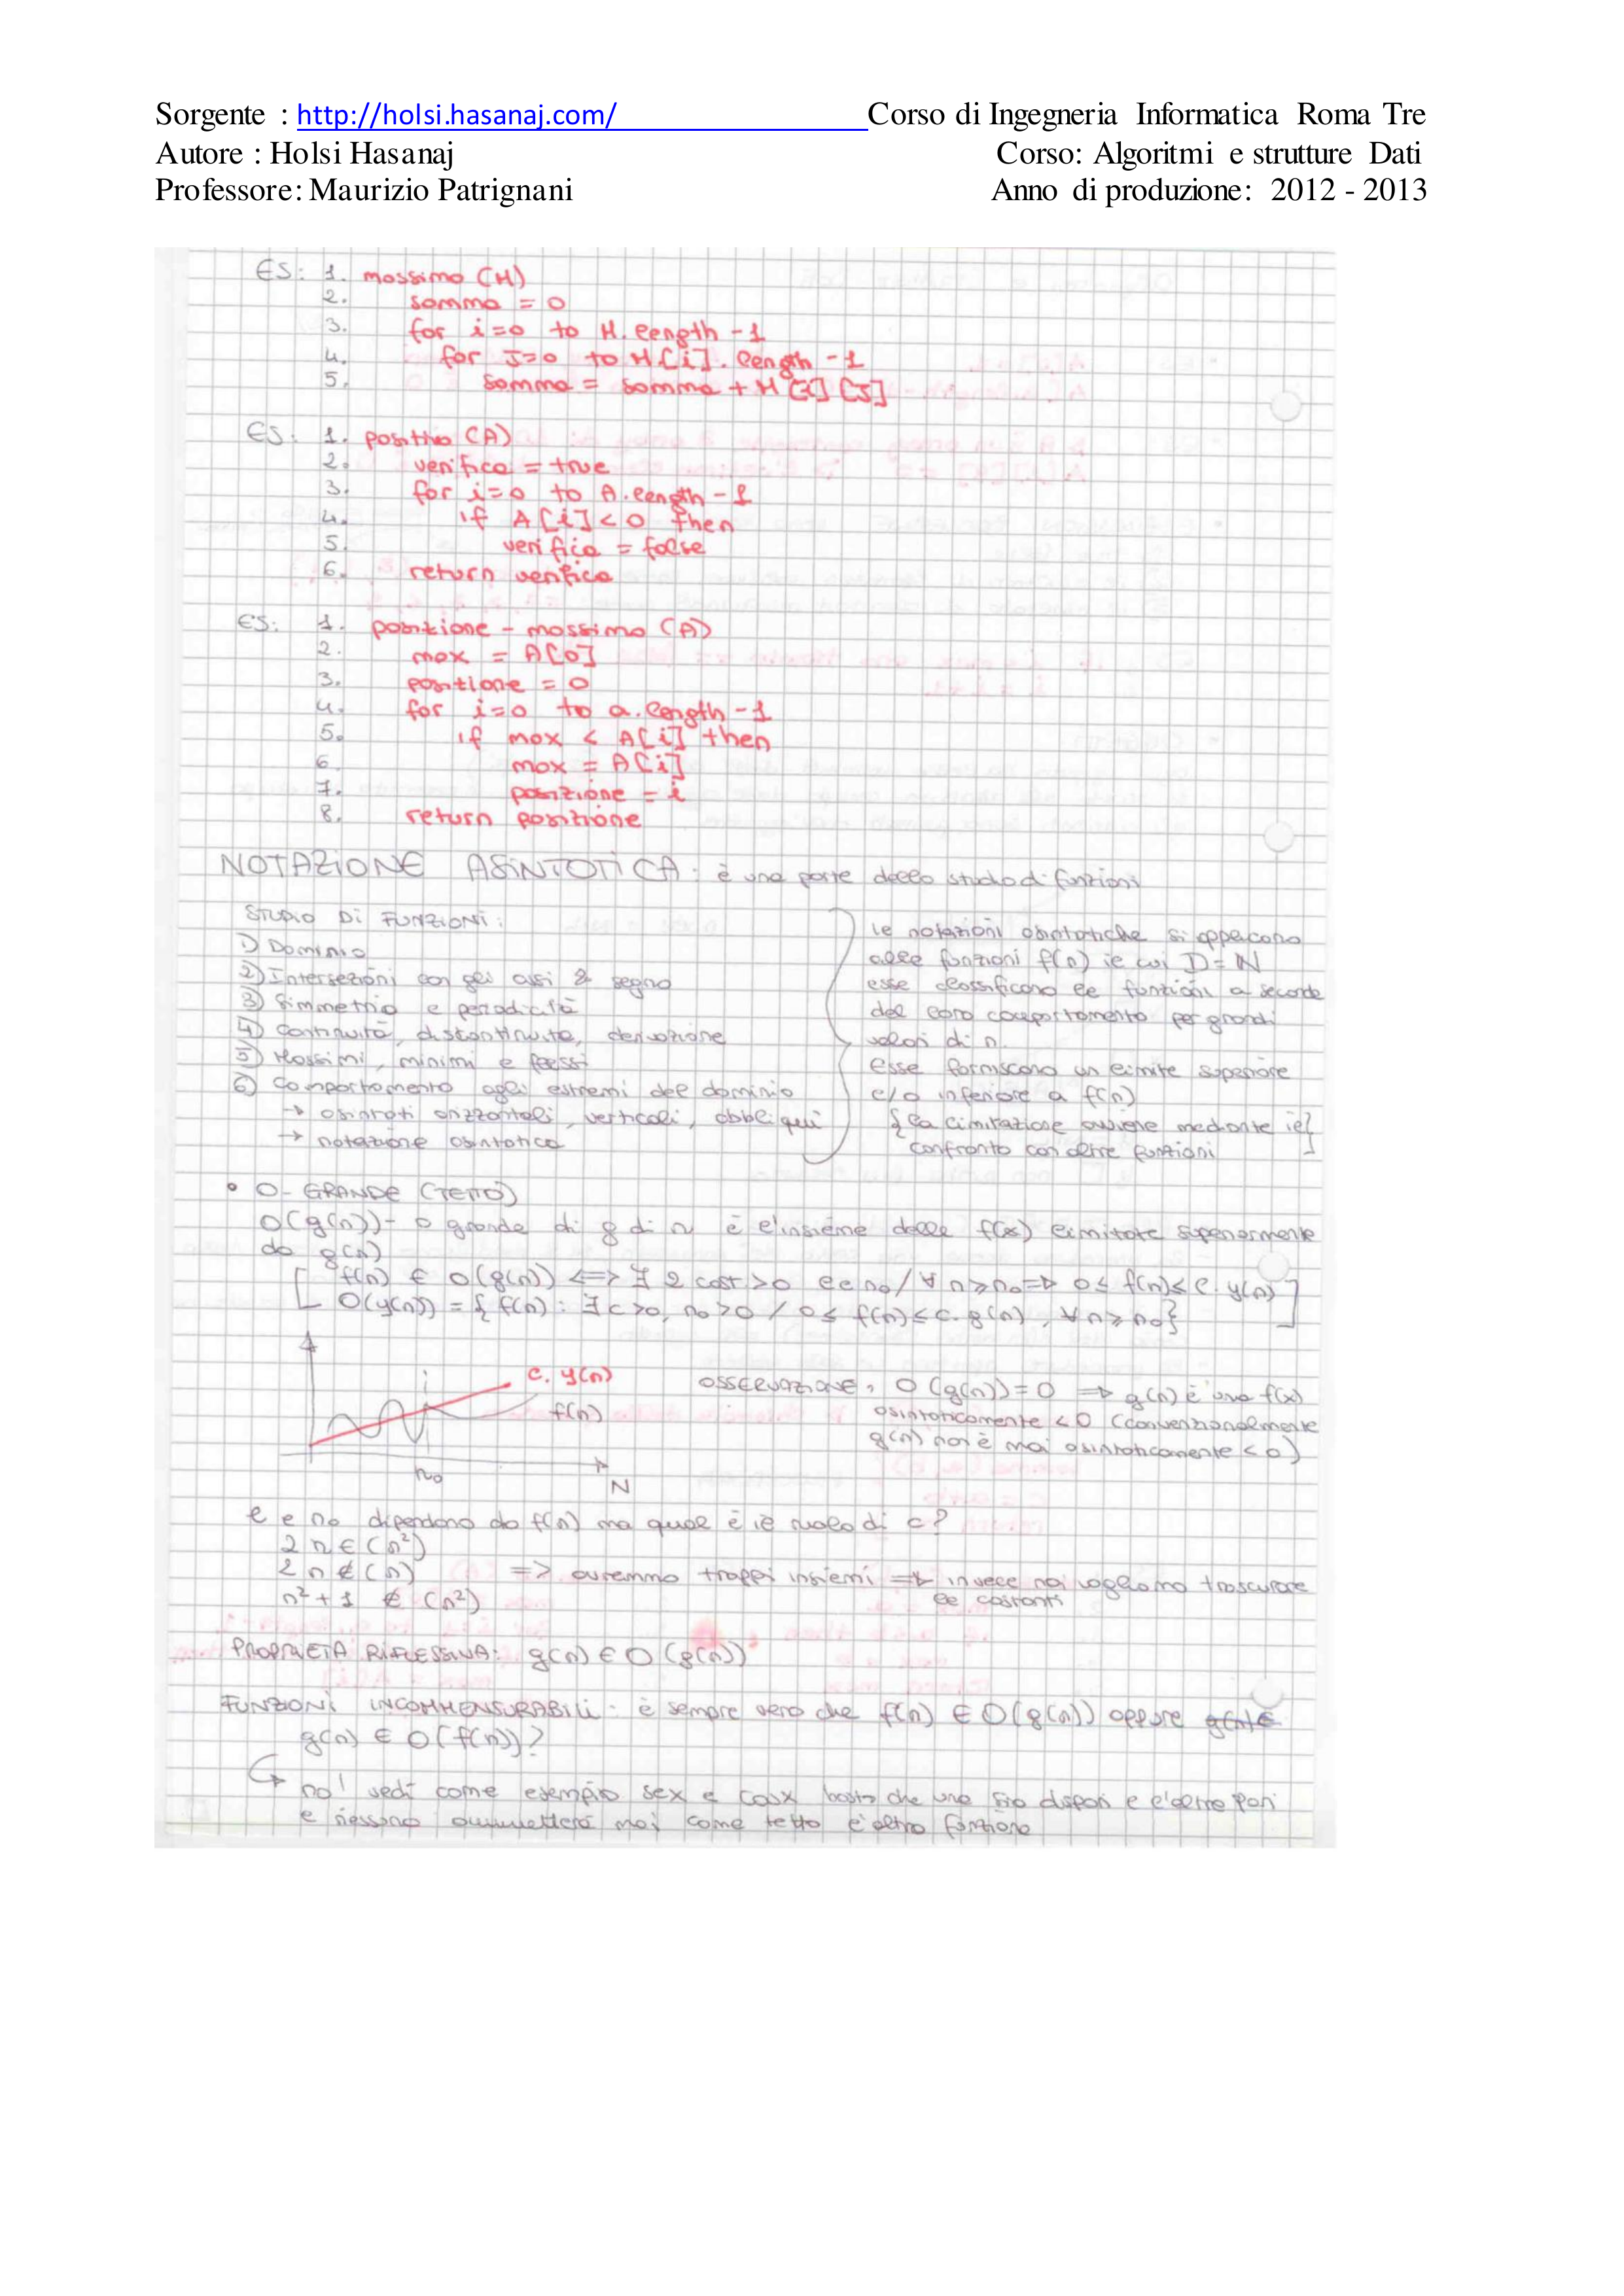 Sorgente : http://holsi.hasanaj.com/ Corso di Ingegneria Informatica Roma Tre
Autore : Holsi Hasanaj Corso: Algoritmi e strutture Dati
Professore: Maurizio Patrignani Anno di produzione: 2012 - 2013
ES: 1. massimo (M)
2. somma = 0
3. for i=0 to M.length -1
4. for J=0 to M[i].length -1
5. somma = somma + M[i][J]
ES: 1. positivo (A)
2. verifica = true
3. for i=0 to A.length -1
4. if A[i]<0 then
5. verifica = false
6. return verifica
ES: 1. posizione - massimo (A)
2. max = A[0]
3. posizione = 0
4. for i=0 to a.length -1
5. if max < A[i] then
6. max = A[i]
7. posizione = i
8. return posizione
NOTAZIONE ASINTOTICA: è una parte dello studio di funzioni
STUDIO DI FUNZIONI:
1) Dominio
2) Intersezioni con gli assi & segno
3) Simmetria e periodicità
4) Continuità, discontinuità, derivazione
5) Massimi, minimi e flessi
6) Comportamento agli estremi del dominio
→ asintoti orizzontali, verticali, obbliqui
→ notazione asintotica
le notazioni asintotiche si applicano
alle funzioni f(n) le cui D=N
esse classificano le funzioni a seconda
del loro comportamento per grandi
valori di n.
esse forniscono un limite superiore
e/o inferiore a f(n)
{la limitazione avviene mediante il}
confronto con altre funzioni
• O- GRANDE (TETTO)
O(g(n))- o grande di g di n è l'insieme delle f(x) limitate superiormente
da g(n)
[ f(n) ∈ O(g(n)) <=> ∃ 2 cost >0 c e n0 / ∀ n≥n0 => 0≤ f(n)≤ c. g(n) ]
O(g(n)) = { f(n) : ∃ c >0, n0 >0 / 0≤ f(n)≤ c.g(n), ∀ n≥ n0}
c. g(n)
f(n)
n0
N
OSSERVAZIONE, O(g(n))=0 => g(n) è una f(x)
asintoticamente <0 (convenzionalmente
g(n) non è mai asintoticamente <0)
c e n0 dipendono da f(n) ma qual è il ruolo di c?
2n ∈ (n²)
2n ∉ (n) => avremmo troppi insiemi => invece noi vogliamo trascurare
le costanti
n²+1 ∉ (n²)
PROPRIETÀ RIFLESSIVA: g(n) ∈ O (g(n))
FUNZIONI INCOMMENSURABILI: è sempre vero che f(n) ∈ O(g(n)) oppure g(n) ∈
g(n) ∈ O(f(n))?
no! vedi come esempio sex e cosx basta che una sia dispari e l'altra pari
e nessuna ammetterà mai come tetto l'altra funzione